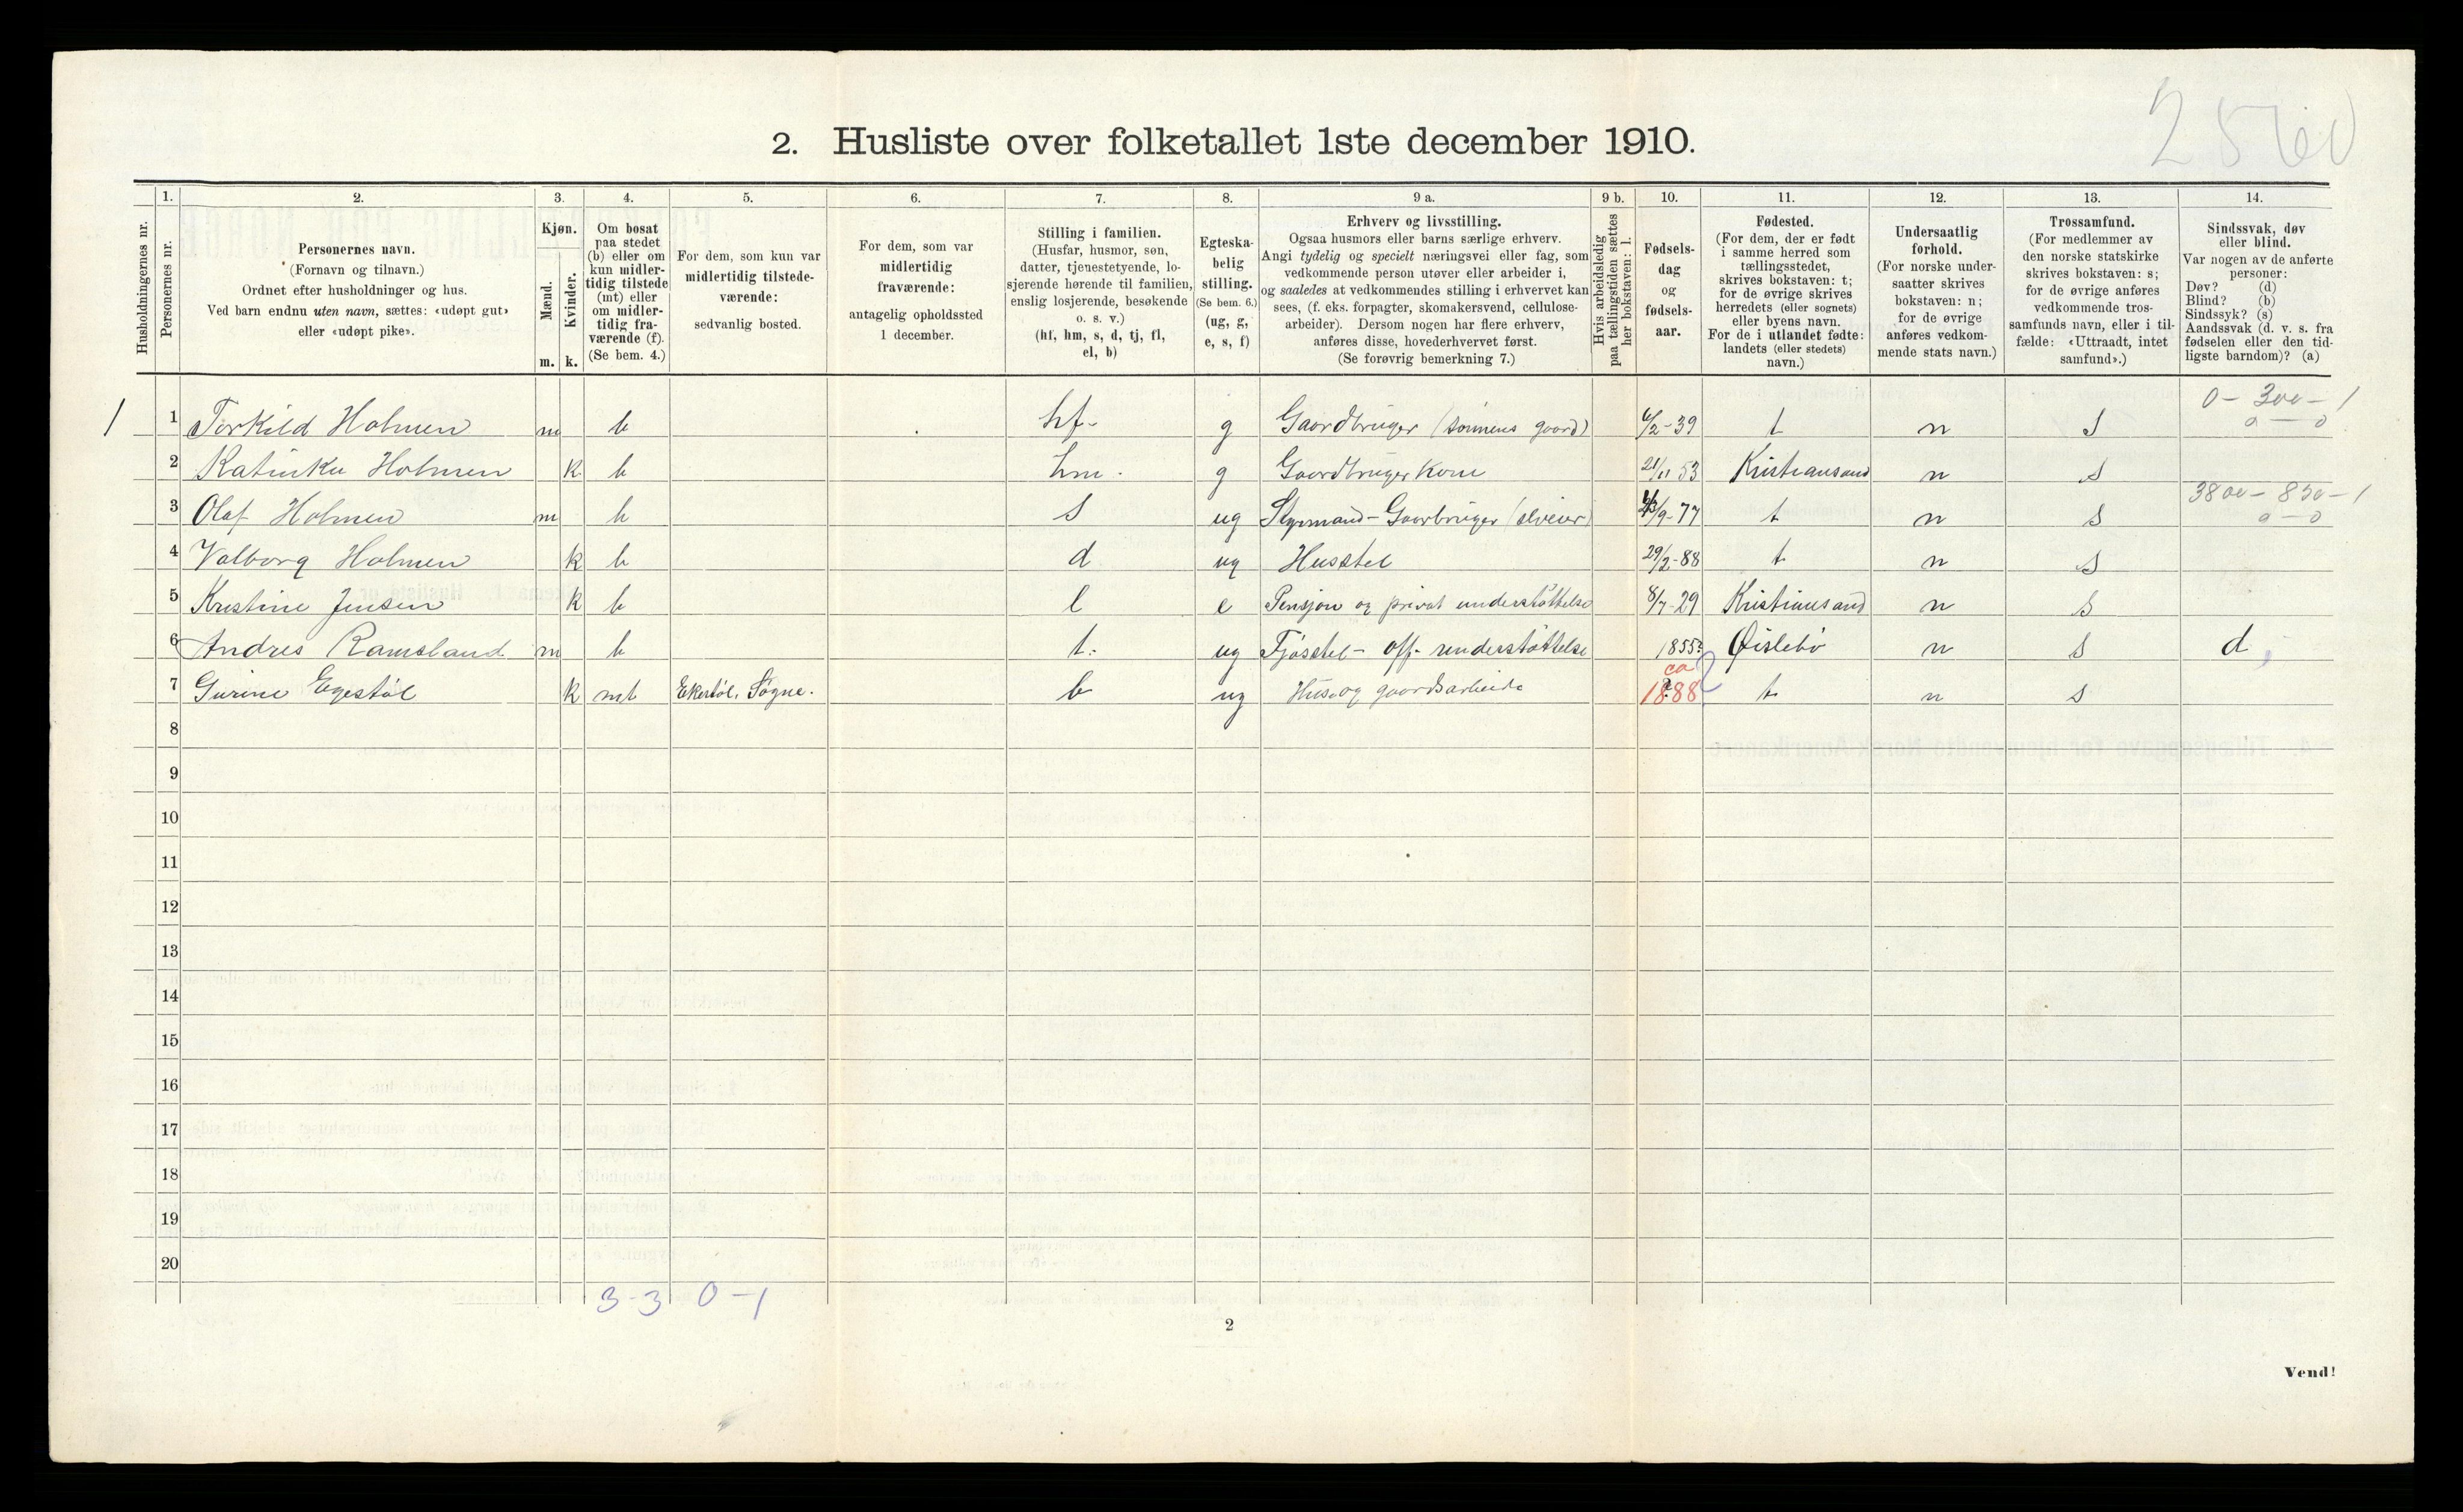 2560
2. Husliste over folketallet 1ste december 1910.
Husholdningernes nr.
1.
Personernes nr.
2.
Personernes navn.
(Fornavn og tilnavn.)
Ordnet efter husholdninger og hus.
Ved barn endnu uten navn, sættes: «udøpt gut»
eller «udøpt pike».
3.
Kjøn.
Mænd.
Kvinder.
m. k.
4.
Om bosat
paa stedet
(b) eller om
kun midler-
tidig tilstede
(mt) eller
om midler-
tidig fra-
værende (f).
(Se bem. 4.)
5.
For dem, som kun var
midlertidig tilstede-
værende:
sedvanlig bosted.
6.
For dem, som var
midlertidig
fraværende:
antagelig opholdssted
1 december.
7.
Stilling i familien.
(Husfar, husmor, søn,
datter, tjenestetyende, lo-
sjerende hørende til familien,
enslig losjerende, besøkende
o. s. v.)
(hf, hm, s, d, tj, fl,
el, b)
8.
Egteska-
belig
stilling.
(Se bem. 6.)
(ug, g,
e, s, f)
9 a.
Erhverv og livsstilling.
Ogsaa husmors eller barns særlige erhverv.
Angi tydelig og specielt næringsvei eller fag, som
vedkommende person utøver eller arbeider i,
og saaledes at vedkommendes stilling i erhvervet kan
sees, (f. eks. forpagter, skomakersvend, cellulose-
arbeider). Dersom nogen har flere erhverv,
anføres disse, hovederhvervet først.
(Se forøvrig bemerkning 7.)
9 b.
Hvis arbeidsledig
paa tællingstiden sættes
her bokstaven: l.
10.
Fødsels-
dag
og
fødsels-
aar.
11.
Fødested.
(For dem, der er født
i samme herred som
tællingsstedet,
skrives bokstaven: t;
for de øvrige skrives
herredets (eller sognets)
eller byens navn.
For de i utlandet fødte:
landets (eller stedets)
navn.)
12.
Undersaatlig
forhold.
(For norske under-
saatter skrives
bokstaven: n;
for de øvrige
anføres vedkom-
mende stats navn.)
13.
Trossamfund.
(For medlemmer av
den norske statskirke
skrives bokstaven: s;
for de øvrige anføres
vedkommende tros-
samfunds navn, eller i til-
fælde: «Uttraadt, intet
samfund».)
14.
Sindssvak, døv
eller blind.
Var nogen av de anførte
personer:
Døv? (d)
Blind? (b)
Sindssyk? (s)
Aandssvak (d. v. s. fra
fødselen eller den tid-
ligste barndom)? (a)
0 - 300 - 1
1 1 Torkild Holmen m b hf- g Gaardbruger (sønnens gaard) 6/2-39 t n s 0 — 0
2 Katinka Holmen k b hm. g Gaardbrugerkone 21/11 53 Kristiansand n s
3800 - 850 - 1
3 Olaf Holmen m b s ug Styrmand - Gaarbruger (selveier) /9-77 t n s 0 - 0
4 Valborg Holmen k b d ug Husstel 29/2-88 t n s
5 Kristine Jensen k b l e Pensjon og privat understøttelse 8/7-29 Kristiansand n s
6 Andres Ramsland m b t. ug Fjøsstel - off. understøttelse 1855? Øislebø n s d
7 Gurine Egestøl k mt Ekestøl, Søgne. b ug Hus og gaardsarbeide ca 1888 ? t n s
8
9
10
11
12
13
14
15
16
17
18
19
20
3-3 0-1
2
Vend!